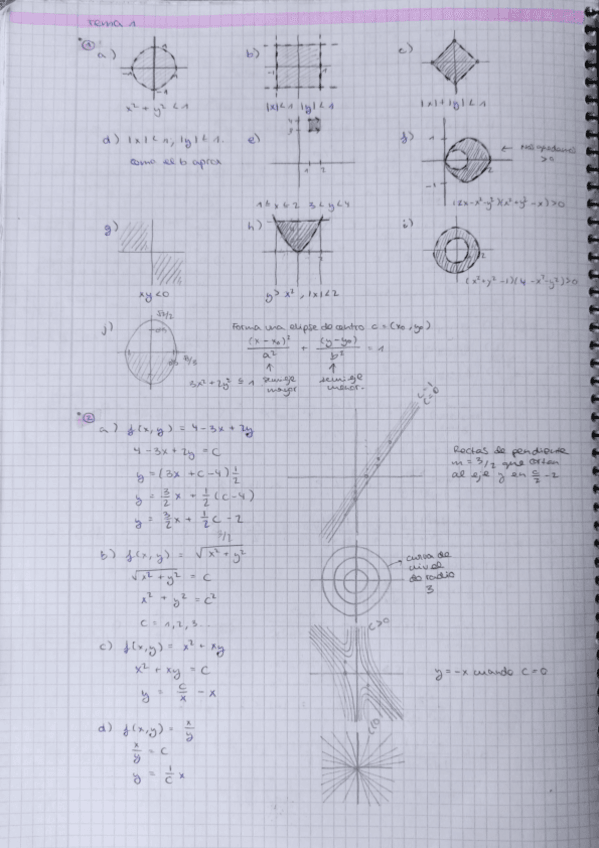 Tema 1
1
a)
b)
c)
x² + y² < 1
|x|<1 |y|<1
|x|+|y|<1
d) |x|<1, |y|<1.
como el b
e)
f)
>0
1≤x≤2 3<y<4
(2x-x²-y²)(x²+y²-x)>0
g)
h)
i)
xy<0
y>x², |x|<2
(x²+y²-1)(4-x²-y²)>0
j)
Forma una elipse de centro c=(x₀,y₀)
(x-x₀)²/a² + (y-y₀)²/b² = 1
3x²+2y² ≤ 1
semieje mayor
semieje menor.
2
a) f(x,y) = 4-3x+2y
4-3x+2y = C
y = (3x+C-4)1/2
y = 3/2 x + 1/2 (C-4)
y = 3/2 x + 1/2 C - 2
C=1
C=0
Rectas de pendiente
m = 3/2 que cortan
al eje y en C/2 - 2
b) f(x,y) = √(x²+y²)
√(x²+y²) = C
x² + y² = C²
C = 1,2,3...
curva de
nivel
de radio
3
c) f(x,y) = x² + xy
x² + xy = C
y = C/x - x
C>0
C<0
y = -x cuando C=0
d) f(x,y) = x/y
x/y = C
y = 1/C x